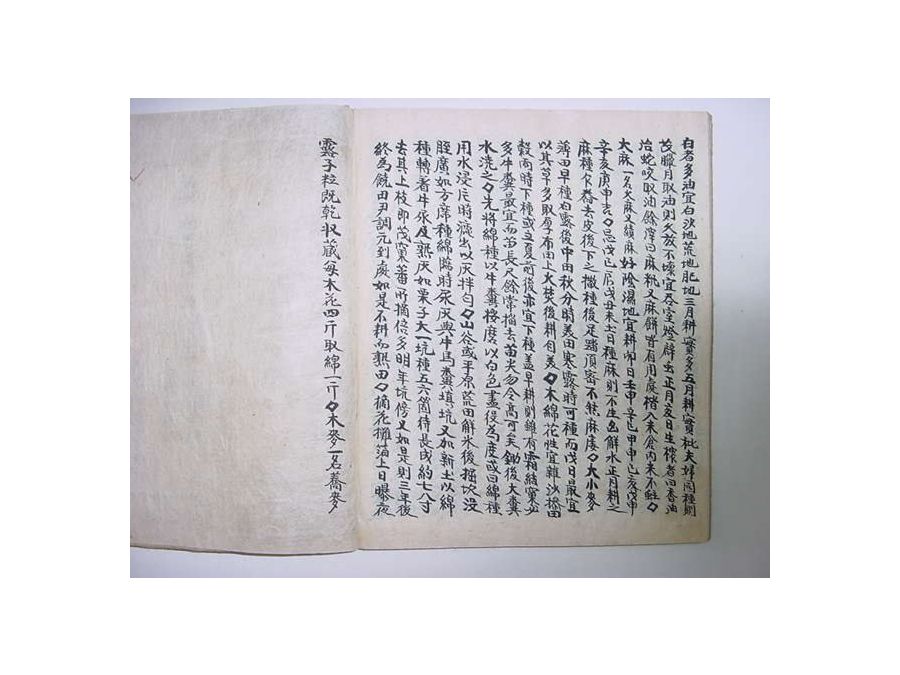 白者多油宜白沙地荒地肥地三月耕實多五月耕實枇夫婦同種則
茂臘月取油則久放不壞宜尽室燈辟虫正月亥日生稼者曰香油
治蛇咬取油餘滓曰麻籸又麻餅皆有用處楷入米倉內米不蛀〇
大麻一名火麻又績麻好陰濕地宜耕卯日壬申辛巳甲申乙亥戊申
辛亥庚申吉〇忌戊己戌丑未土日種麻則不出解水正月耕之
麻種乍舂去皮後下之撒種後足踏頂密不然麻虛〇大小麥
薄田早種白露後中由秋分時美田寒露時可種而戊日最宜
以其草多取厚布田上火焚後耕自美〇木綿花性宜雜沙㙻田
穀雨時下種或立夏前後亦宜下種盖早耕則雖有霜結實必
多牛糞最宜而苗長尺餘常摘去苗尖勿令高可矣鋤後大糞
水洗之〇先將綿種以牛糞搽度以白色盡侵為度或曰綿種
用水浸片時漉出以灰拌勻〇山谷或平原荒田解氷後掘坎沒
脛廣如方席種綿臨時尿灰與牛馬糞填坑又加新土以綿
種轉着牛尿及熟灰如栗子大一坑種五六箇待長成約七八寸
去其上枝即茂實蕃所摘倍多明年坑傍又如是則三年後
終為饒田尹調元到處如是不耕而熟田〇摘花攤箔上日曝夜
露子粒既乾收藏每木花四斤取綿一斤〇木麥一名蕎麥